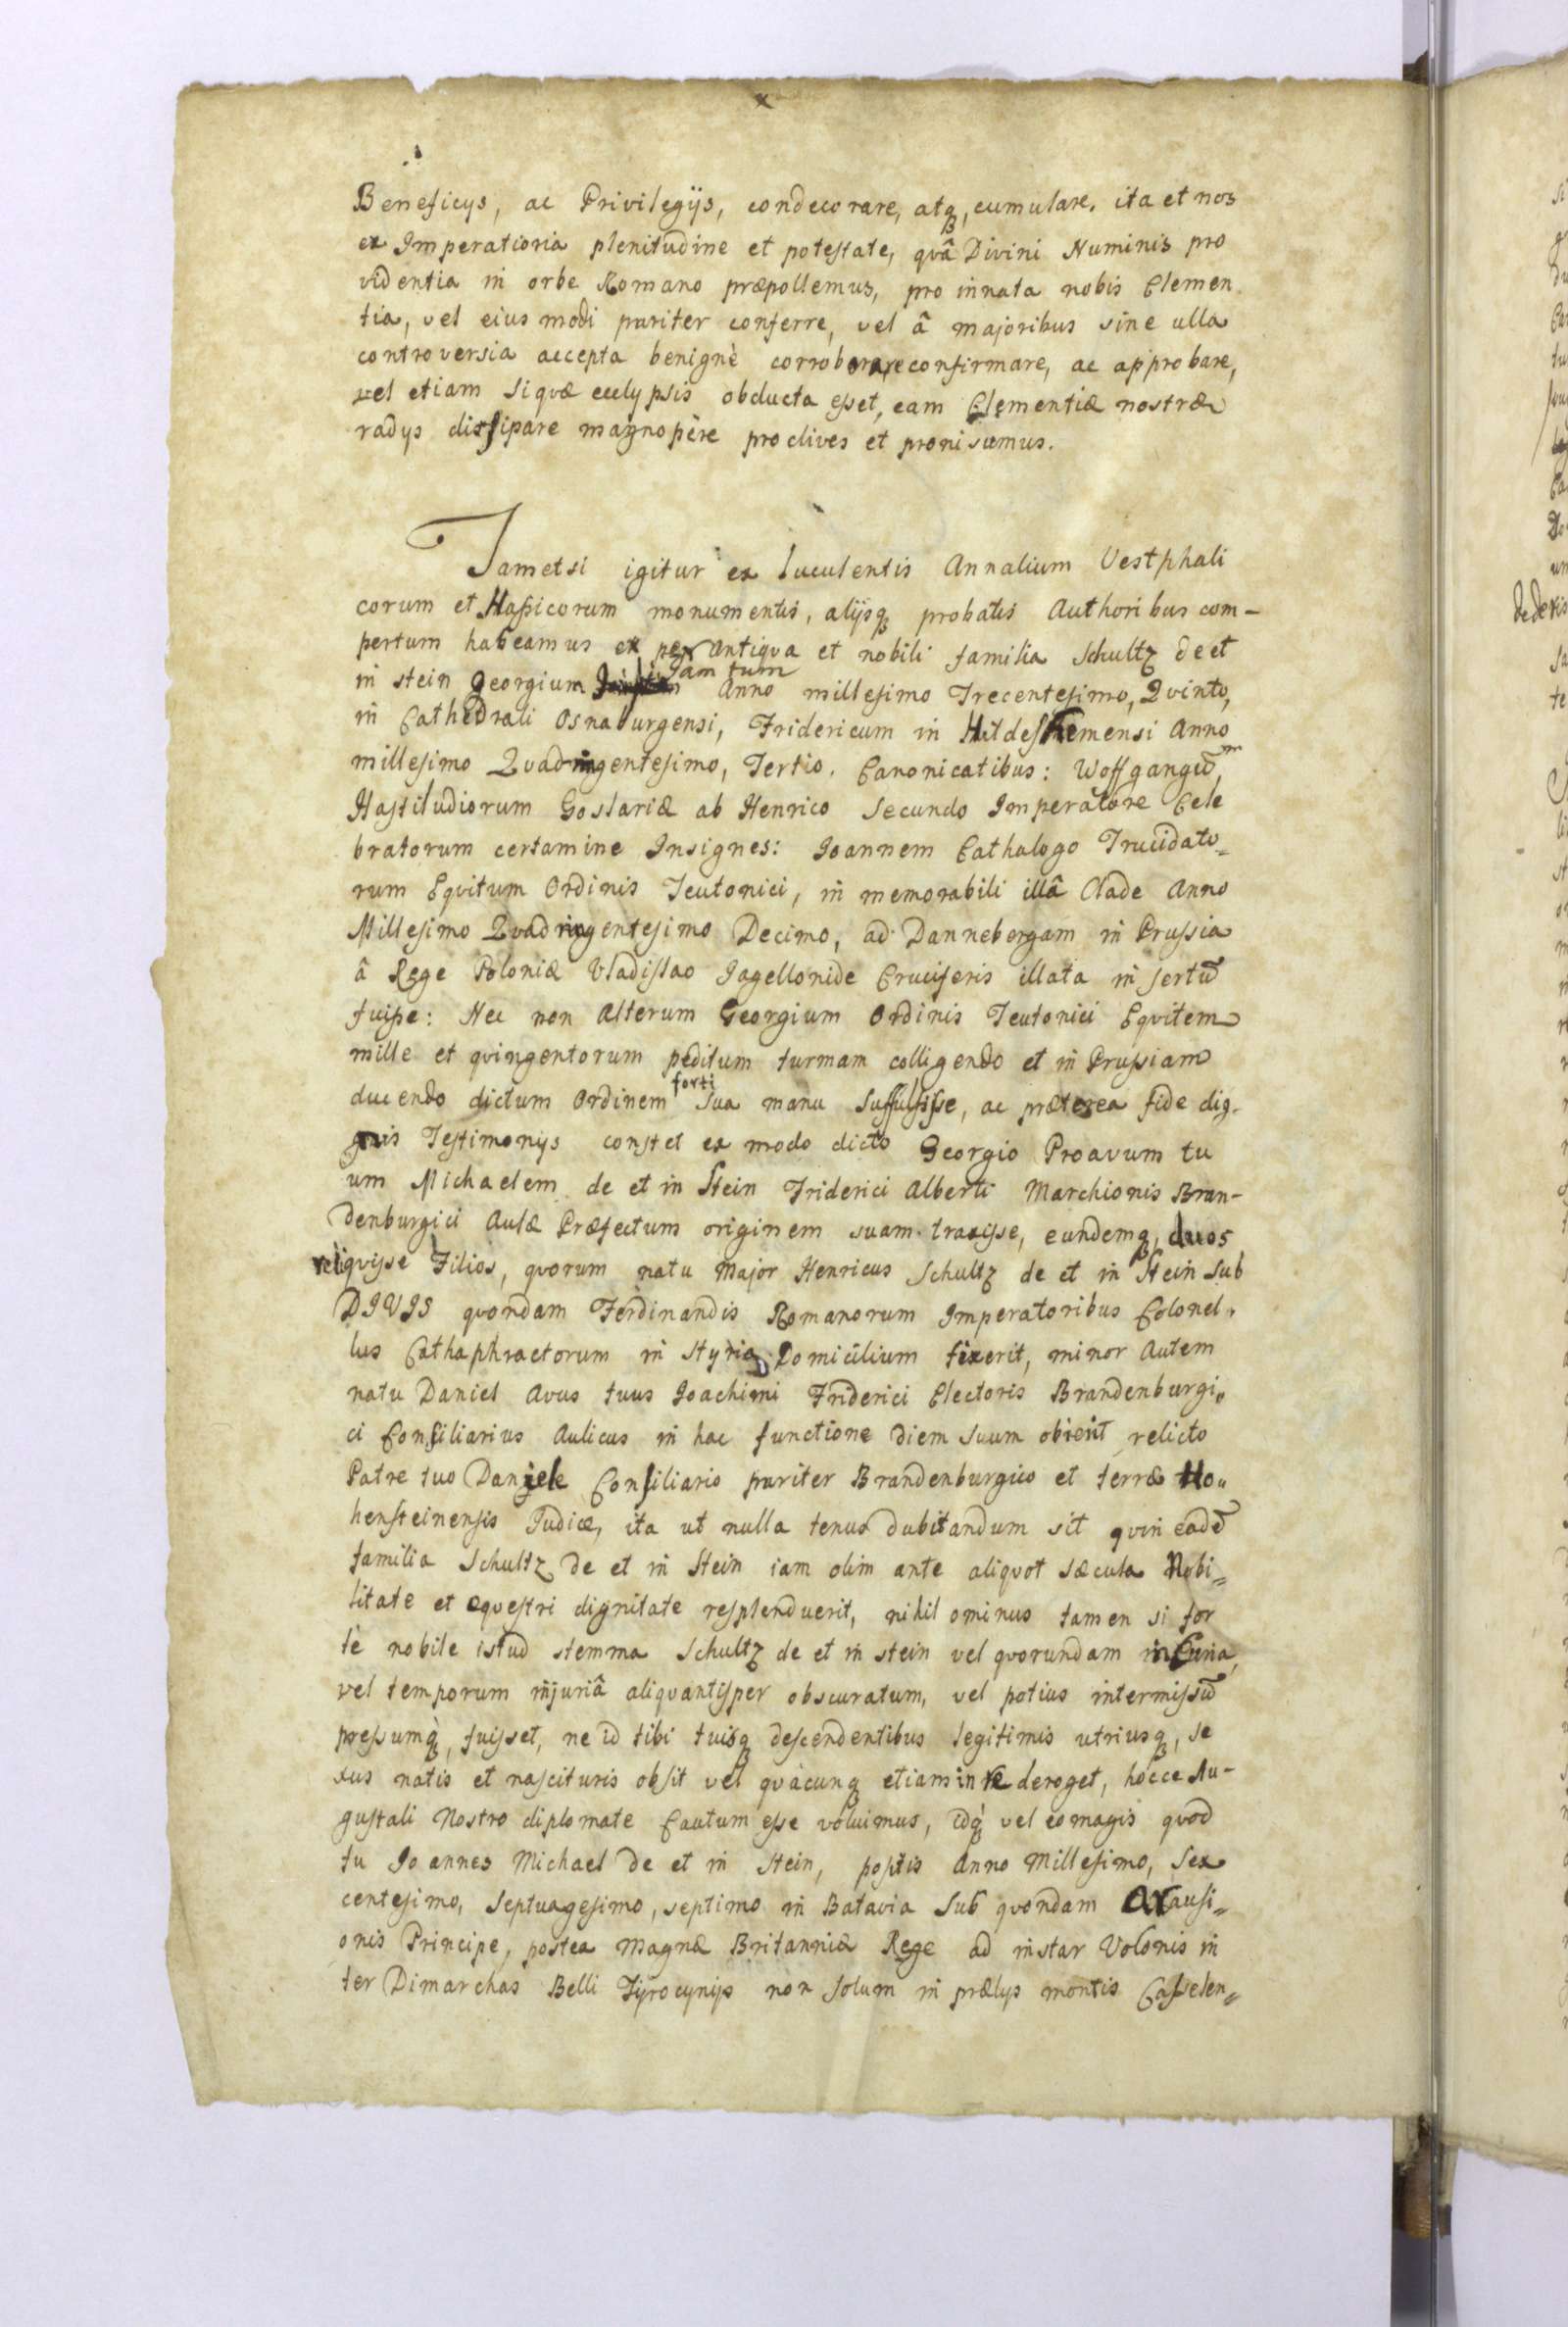 Beneficys, ac Privilegijs, condecorare, atq, cumulare. ita et nos
ex Imperatioria plenitudine et potestate, qvâ Divini Numinis pro
videntia in orbe Romano præpollemus, pro innata nobis Clemen
tia, vel eius modi pariter conferre, vel â majoribus sine ulla
controversia accepta benignè corroborare confirmare, ac approbare,
vel etiam siqvæ eclypsis obducta esset, eam Clementiæ nostræ
radys dissipare magnopère proclives et proni sumus.
Tametsi igitur ex luculentis Annalium Vestphali
corum et Hassicorum monumentis, alijsq probatis Authoribus com-
pertum habeamus ex per antiqva et nobili familia Schultz de et
in stein Georgium jam tum Anno millesimo Trecentesimo, Qvinto,
in Cathedrali Osnaburgensi, Fridericum in Hildeshemensi Anno
millesimo Qvadringentesimo, Tertio. Canonicatibus: Woffgangũm,
Hastiludiorum Goslariæ ab Henrico Secundo Imperatore Cele
bratorum certamine Insignes: Ioannem Cathalogo Trucidato-
rum Eqvitum Ordinis Teutonici, in memorabili illâ Clade Anno
Millesimo Qvadringentesimo Decimo, ad Dannebergam in Prussia
â Rege Poloniæ Vladislao Jagellonide Cruciferis illata in sertũ
fuisse: Nec non Alterum Georgium Ordinis Teutonici Eqvitem
mille et qvingentorum peditum turmam colligendo et in Prussiam
ducendo dictum Ordinem forti sua manu suffulsisse, ac præterea fide dig-
nis Testimonijs constet ex modo dicto Georgio Proavum tu
um Michaelem de et in Stein Friderici Alberti Marchionis Bran-
denburgici Aulæ Præfectum originem suam traxisse, eundemq, duos
reliqvisse Filios, qvorum natu Major Henricus Schultz de et in Stein sub
DIVIS qvondam Ferdinandis Romanorum Imperatoribus Colonel-
lus Cathaphractorum in Styria Domicilium fixerit, minor Autem
natu Daniel Avus tuus Joachimi Friderici Electoris Brandenburgi-
ci Consiliarius Aulicus in hac functione diem suum obierit relicto
Patre tuo Daniele Consiliario pariter Brandenburgico et terræ Ho-
hensteinensis Judice, ita ut nulla tenus dubitandum sit qvin eadẽ
familia Schultz de et in Stein iam olim ante aliqvot sæcula Nobi-
litate et eqvestri dignitate resplenduerit, nihil ominus tamen si for
tè nobile istud stemma Schultz de et in stein vel qvorundam incuria,
vel temporum injuriâ aliqvantisper obscuratum, vel potius intermissũ
pressumq, fuisset, ne id tibi tuisq descendentibus legitimis utriusq, se
xus natis et nascituris obsit vel qvàcunq etiam in re deroget, hocce Au-
gustali Nostro diplomate Cautum esse voluimus, idq vel eo magis qvod
tu Joannes Michael de et in Stein, postis Anno Millesimo, Sex
centesimo, Septuagesimo, septimo in Batavia sub qvondam Arausi-
onis Principe, postea Magnæ Britanniæ Rege ad instar Volonis in
ter Dimarchas Belli Tyrocynijs non solum in prælys montis Casselen-